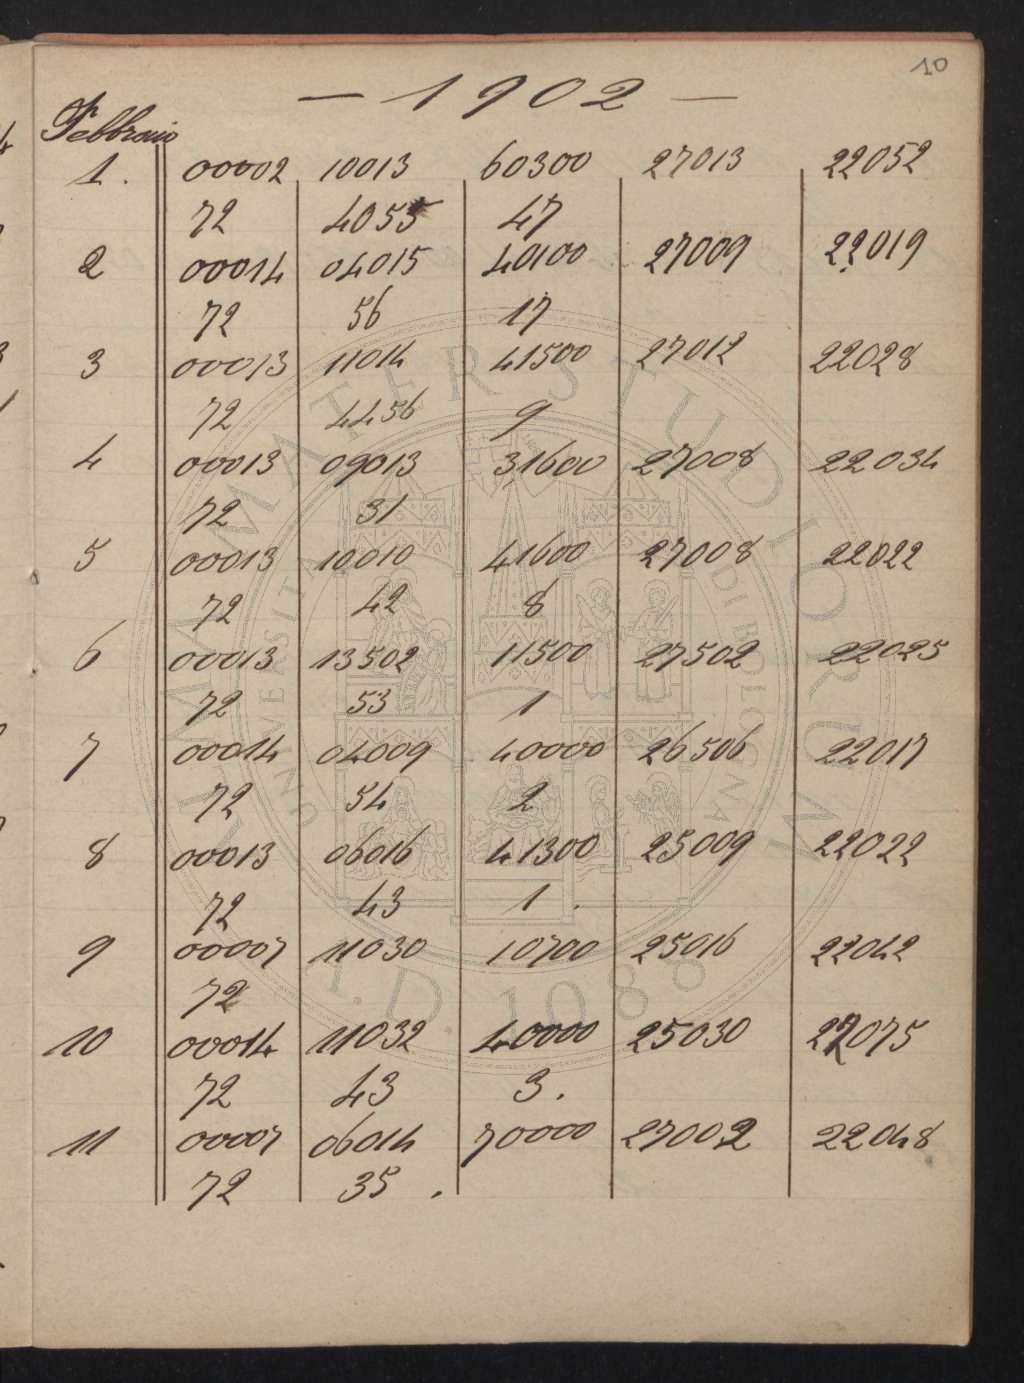 10
— 1902 —
Febbraio
1. 00002 10013 60300 27013 22052
72 4055 47
2 00014 04015 40100 27009 22019
72 56 17
3 00013 11014 41500 27012 22028
72 4456 9
4 00013 09013 31600 27008 22034
72 31
5 00013 10010 41600 27008 22022
72 42 8
6 00013 13502 11500 27502 22025
72 53 1
7 00014 04009 40000 26506 22017
72 54 2
8 00013 06016 41300 25009 22022
72 43 1.
9 00007 11030 10700 25016 22042
72
10 00014 11032 40000 25030 22075
72 43 3.
11 00007 06014 70000 27002 22048
72 35.
ALMA MATER STUDIORUM
UNIVERSITÀ DI BOLOGNA
A.D. 1088